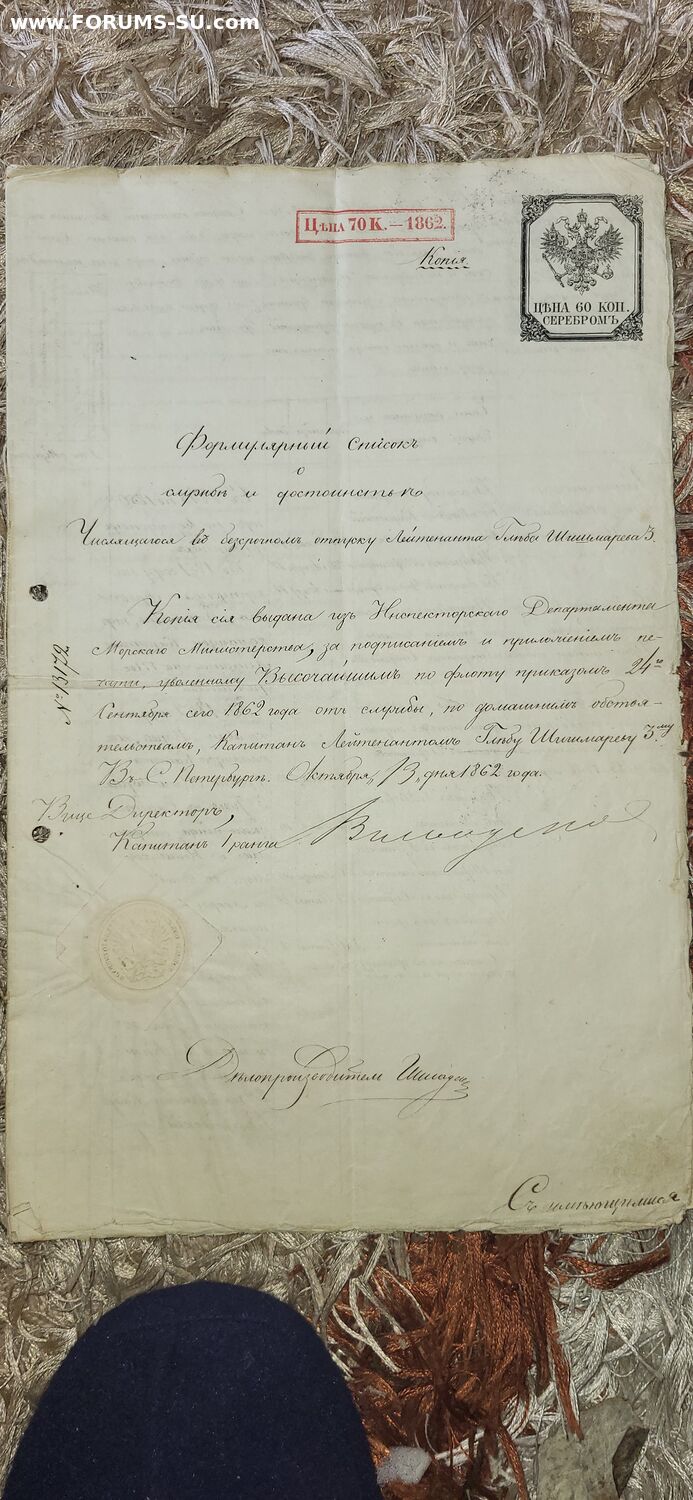 www.FORUMS-SU.com
ЦѢНА 70 К. — 1862.
Копія.
ЦѢНА 60 КОП.
СЕРЕБРОМЪ
Формулярный списокъ
о
службѣ и достоинствѣ
Числящагося въ безсрочномъ отпуску Лейтенанта Глѣба Шишмарева 3.
Копія сія выдана изъ Инспекторскаго Департамента
Морскаго Министерства, за подписаніемъ и приложеніемъ пе-
чати, уволенному Высочайшимъ по флоту приказомъ 24го
Сентября сего 1862 года отъ службы, по домашнимъ обстоя-
тельствамъ, Капитанъ Лейтенантомъ Глѣбу Шишмареву 3му
№ 13172
В. С. Петербургѣ. Октября „13„ дня 1862 года.
Вице Директоръ,
Капитанъ 1 ранга
Дѣлопроизводитель
Съ имѣющимися